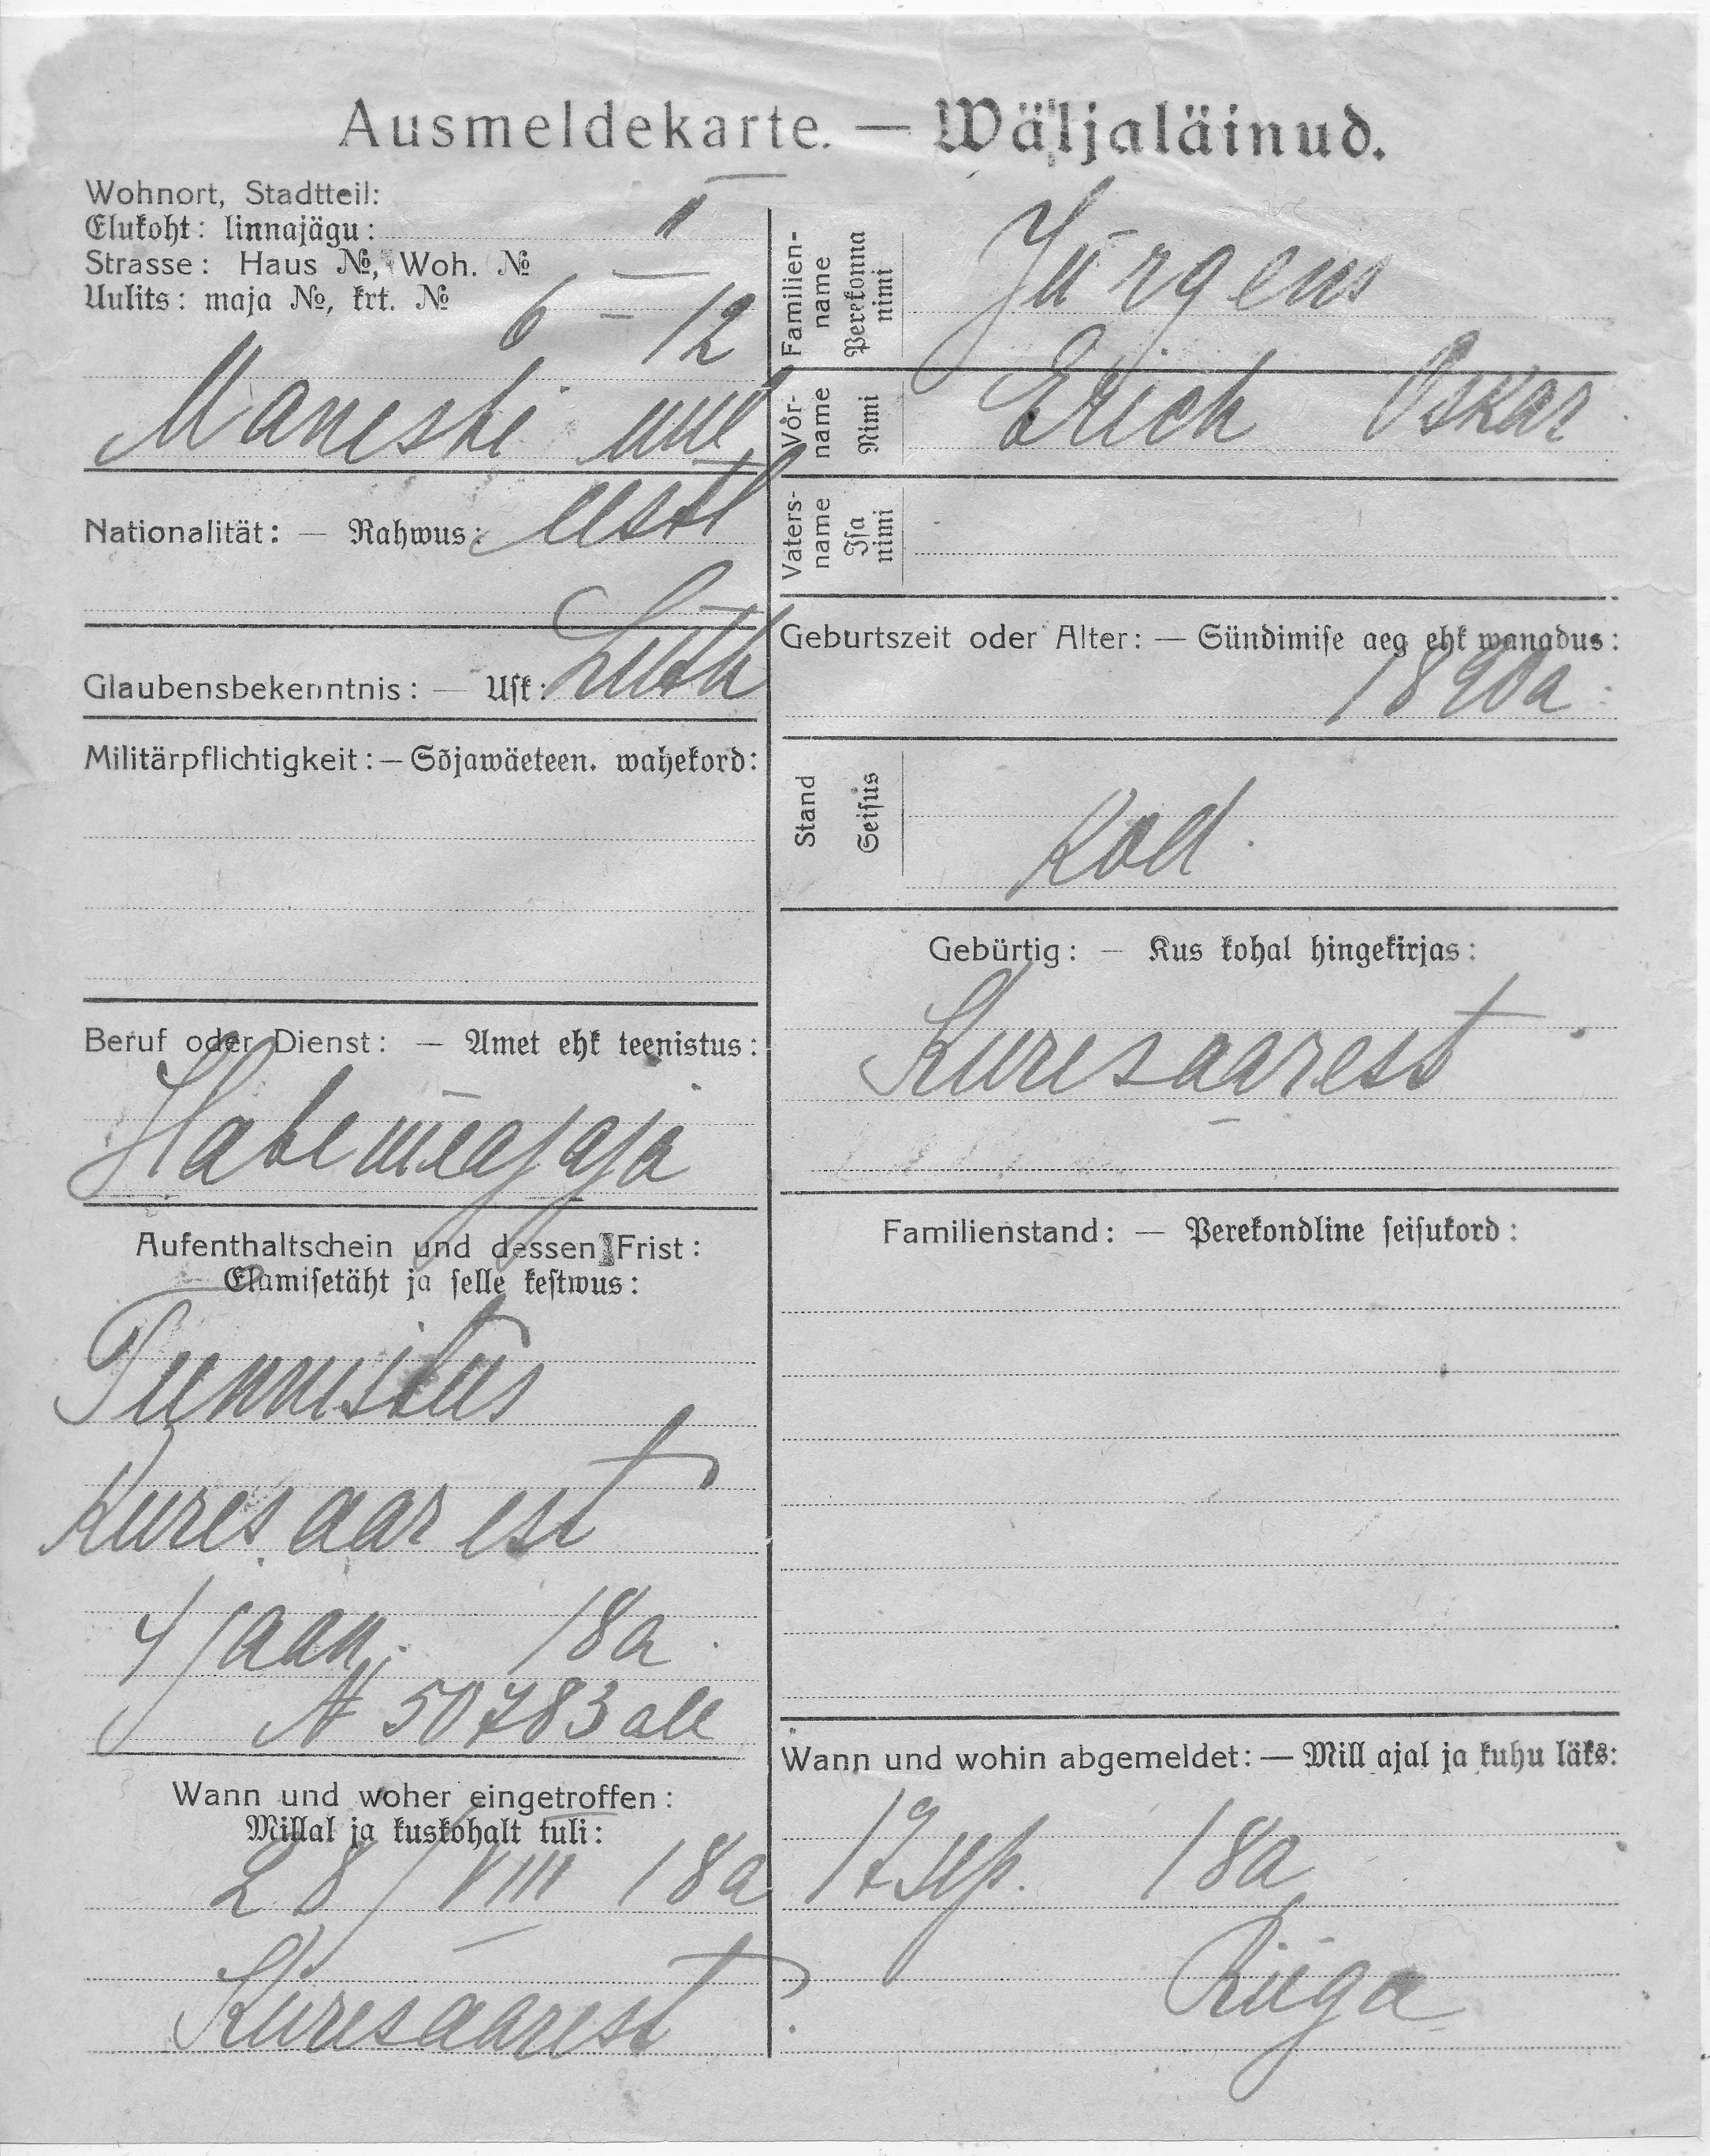 Ausmeldekarte. — Wäljaläinud.
Wohnort, Stadtteil:
Elukoht: linnajägu: II
Strasse: Haus №, Woh. №
Uulits: maja №, krt. №
6 – 12
Maneshi uul
Nationalität: — Rahwus: eestl
Glaubensbekenntnis: — Usk: Luth
Militärpflichtigkeit: — Sõjawäeteen. wahekord:
Beruf oder Dienst: — Amet ehk teenistus:
Habemeajaja
Aufenthaltschein und dessen Frist:
Elamisetäht ja selle kestwus:
Tunnistus
Kuresaarest
4 jaan. 18a.
№ 50783 all
Wann und woher eingetroffen:
Millal ja kuskohalt tuli:
28/VIII 18a
Kuresaarest
Familien-
name
Perekonna
nimi
Jürgens
Vor-
name
Nimi
Erich Oskar
Vaters-
name
Isa
nimi
Geburtszeit oder Alter: — Sündimise aeg ehk wanadus:
1890a.
Stand
Seisus
Kod.
Gebürtig: — Kus kohal hingekirjas:
Kuresaarest
Familienstand: — Perekondline seisukord:
Wann und wohin abgemeldet: — Mill ajal ja kuhu läks:
17 sep. 18a
Riiga